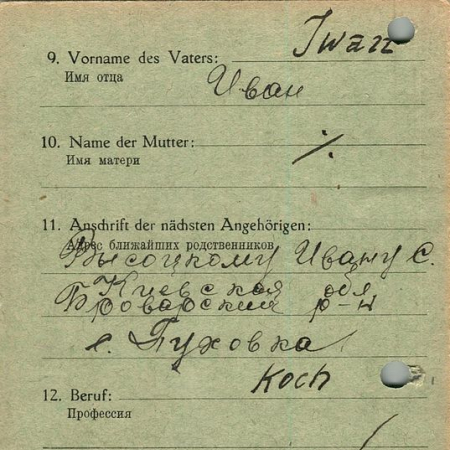 Iwan
9. Vorname des Vaters:
Имя отца
Иван
10. Name der Mutter:
Имя матери
./.
11. Anschrift der nächsten Angehörigen:
Адрес ближайших родственников
Высоцкому Ивану С.
Киевская обл
Броварский р-н
с. Пуховка
Koch
12. Beruf:
Профессия